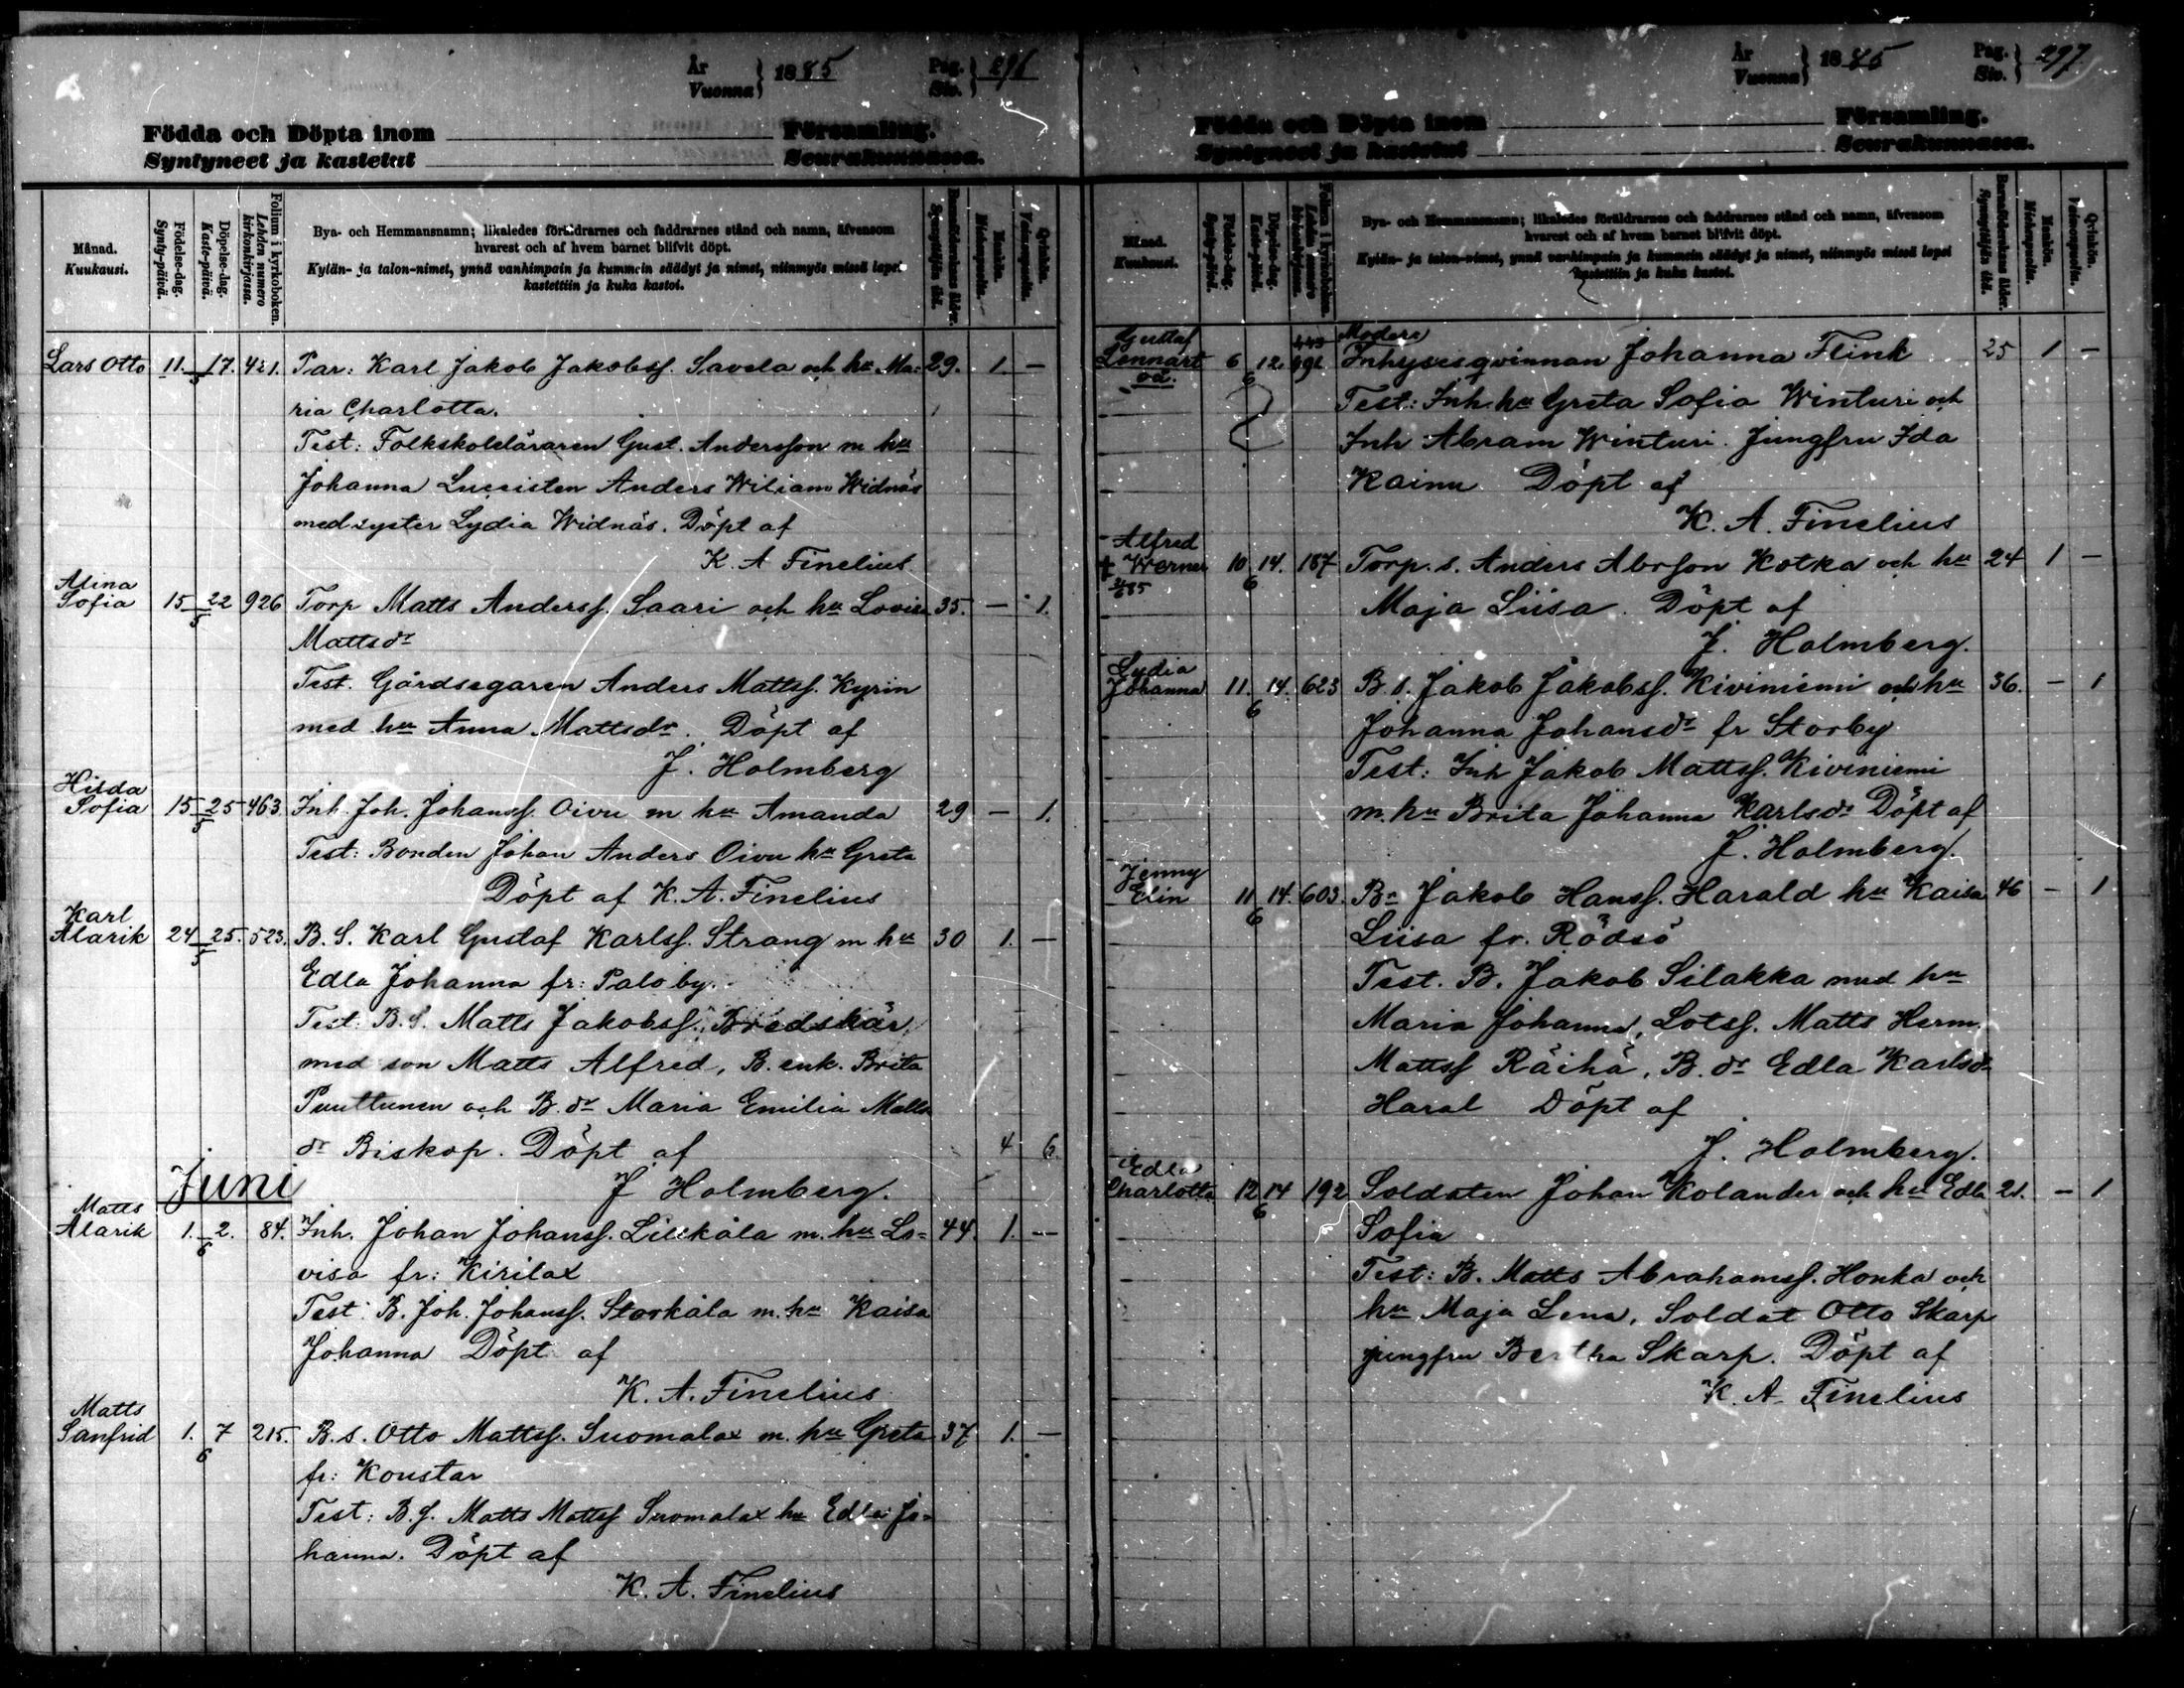 År
Vuonna } 1885 Pag.
Siv. } 296
Födda och Döpta inom Församling.
Syntyneet ja kastetut Seurakunnassa.
Månad.
Kuukausi.
Födelse-dag.
Synty-päivä.
Döpelse-dag.
Kaste-päivä.
Folium i kyrkoboken.
Lehden numero
kirkonkirjassa.
Bya- och Hemmansnamn; likaledes föräldrarnes och faddrarnes stånd och namn, äfvensom
hvarest och af hvem barnet blifvit döpt.
Kylän- ja talon-nimet, ynnä vanhimpain ja kummein säädyt ja nimet, niinmyös missä lapsi
kastettiin ja kuka kastoi.
Barnaföderskans ålder.
Synnyttäjän ikä.
Mankön.
Miehenpuolia.
Qvinkön.
Vaimonpuolia.
Lars Otto 11. 17. 421. Par: Karl Jakob Jakobsf. Savela och hu Ma= 29. 1. —
5
ria Charlotta.
Test: Folkskoleläraren Gust. Andersson m hu
Johanna Anders Wiliam Widnäs
med syster Lydia Widnäs. Döpt af
K. A Finelius
Alina
Sofia 15 22 926 Torp Matts Andersf. Saari och hu Lovisa 35. — 1.
5
Mattsdr
Test. Gårdsegaren Anders Mattsf. Kyrin
med hu Anna Mattsdr. Döpt af
J. Holmberg
Hilda
Sofia 15 25 463. Inh. Joh. Johansf. Oivu m hu Amanda 29 — 1.
5
Test: Bonden Johan Anders Oivu hu Greta
Döpt af K. A. Finelius
Karl
Alarik 24 25. 523. B. S. Karl Gustaf Karlsf. Strang m hu 30 1. —
5
Edla Johanna fr: Palo by.
Test: B. S. Matts Jakobsf. Bredskär
med son Matts Alfred, B. enk. Brita
Puuttunen och B. dr Maria Emilia Matts
dr Biskop. Döpt af 4 6.
Juni J Holmberg.
Matts
Alarik 1. 2. 84. Inh. Johan Johansf. Lillkåla m. hu Lo= 44. 1. —
6
visa fr: Kirilax
Test: B. Joh. Johansf. Storkåla m. hu Kaisa
Johanna Döpt af
K. A. Finelius
Matts
Sanfrid 1. 7 215. B. s. Otto Mattsf. Suomalax m. hu Greta 37 1. —
6
fr: Koustar
Test: B. S. Matts Mattsf Suomalax hu Edla Jo=
hanna. Döpt af
K. A. Finelius
År
Vuonna } 1885 Pag.
Siv. } 297
Födda och Döpta inom Församling.
Syntyneet ja kastetut Seurakunnassa.
Månad.
Kuukausi.
Födelse-dag.
Synty-päivä.
Döpelse-dag.
Kaste-päivä.
Folium i kyrkoboken.
Lehden numero
kirkonkirjassa.
Bya- och Hemmansnamn; likaledes föräldrarnes och faddrarnes stånd och namn, äfvensom
hvarest och af hvem barnet blifvit döpt.
Kylän- ja talon-nimet, ynnä vanhimpain ja kummein säädyt ja nimet, niinmyös missä lapsi
kastettiin ja kuka kastoi.
Barnaföderskans ålder.
Synnyttäjän ikä.
Mankön.
Miehenpuolia.
Qvinkön.
Vaimonpuolia.
Gustaf 443 Moder:
Lennart 6 12. Inhysesqvinnan Johanna Flink 25 1 —
oä. 6
Test: Inh. hu Greta Sofia Winturi och
Inh Abram Winturi. Jungfru Ida
Kainu Döpt af
K. A. Finelius
Alfred
+ Werner 10 14. 187 Torp. s. Anders Abrson Kotka och hu 24 1 —
6
Maja Liisa. Döpt af
J. Holmberg.
Lydia
Johanna 11. 14. 623 B. s. Jakob Jakobsf. Kiviniemi och hu 36. — 1
6
Johanna Johansdr fr Storby
Test: Inh Jakob Mattsf. Kiviniemi
m. hu Brita Johanna Karlsdr Döpt af
J. Holmberg.
Jenny
Elin 11 14. 603. Bn Jakob Hansf. Harald hu Kaisa 46 — 1
6
Liisa fr. Rödsö
Test. B. Jakob Silakka med hu
Maria Johanna, Lotsf. Matts Herm.
Mattsf Räihä, B. dr Edla Karlsdr
Haral Döpt af
J. Holmberg.
Edla
Charlotta 12 14 192 Soldaten Johan Kolander och hu Edla 21. — 1
6
Sofia
Test: B. Matts Abrahamsf. Honka och
hu Maja Lena, Soldat Otto Skarp
jungfru Bertha Skarp. Döpt af
K. A. Finelius